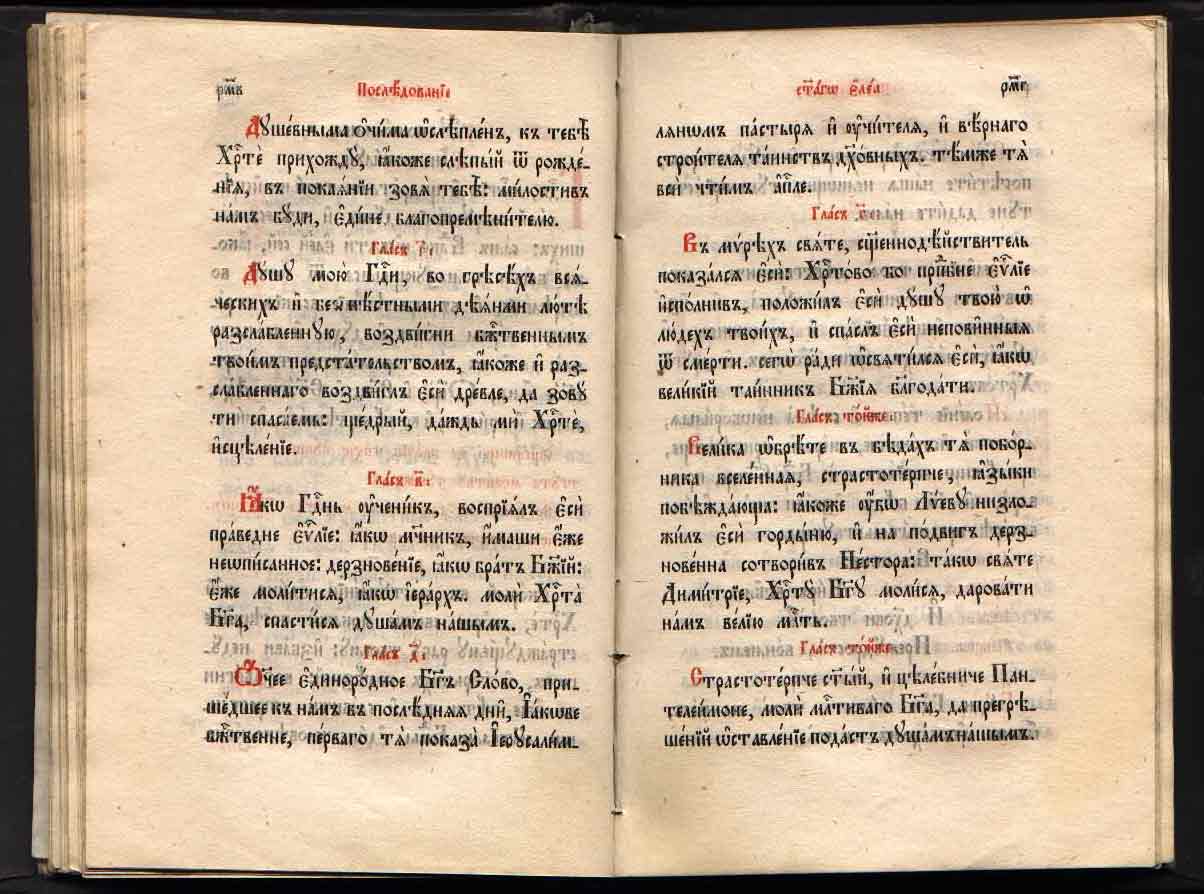 рм҃в
Послѣ́дованїе
Дꙋше́вныма ѻ҆чи́ма ѡ҆слѣпле́нъ, къ тебѣ̀
Хрⷭ҇тѐ прихождꙋ̀, ꙗ҆́коже слѣпы́й ѿ рожде́-
нїѧ, въ покаѧ́нїи зовꙋ̀ тебѣ̀: ми́лостивъ
на́мъ бꙋ́ди, є҆ди́не благопремѣни́телю.
Гла́съ г҃:
Дꙋ́шꙋ мою̀ Гдⷭ҇и, во грѣсѣ́хъ всѧ́-
ческихъ и҆ безмѣ́стными дѣѧ́нми лю́тѣ
разсла́бленнꙋю, воздви́гни бжⷭ҇твеннымъ
твои́мъ предста́тельствомъ, ꙗ҆́коже и҆ раз-
сла́бленнаго воздви́глъ є҆сѝ дре́вле, да зовꙋ́
ти спаса́емь: ще́дрый, да́ждь мѝ Хрⷭ҇тѐ,
и҆сцѣле́нїе.
Гла́съ в҃:
Ꙗ҆́кѡ Гдⷭ҇нь ᲂу҆чени́къ, воспрїѧ́лъ є҆сѝ
пра́ведне є҆ѵⷢ҇лїе: ꙗ҆́кѡ мч҃никъ, и҆́маши є҆́же
неѡпи́санное: дерзнове́нїе, ꙗ҆́кѡ бра́тъ Бж҃їй:
є҆́же моли́тисѧ, ꙗ҆́кѡ і҆ера́рхъ. молѝ Хрⷭ҇та̀
Бг҃а, спасти́сѧ дꙋша́мъ на́шымъ.
Гла́съ д҃:
Ѻ҆́ч҃ее є҆диноро́дное Бг҃ъ Сло́во, при-
ше́дшее къ на́мъ въ послѣ̑днѧѧ дни̑, І҆а́кѡве
бжⷭ҇твенне, пе́рваго тѧ̀ показа̀ І҆ерꙋсали́м-
ст҃а́гѡ є҆ле́а
рм҃г
лѧнѡмъ па́стырѧ и҆ ᲂу҆чи́телѧ, и҆ вѣ́рнаго
строи́телѧ та́инствъ дꙋхо́вныхъ. тѣ́мже тѧ̀
всѝ чти́мъ а҆пⷭ҇ле.
Гла́съ г҃:
Въ мѵ́рѣхъ свѧ́те, сщ҃еннодѣ́йствитель
показа́лсѧ є҆сѝ: Хрⷭ҇то́во бо прпⷣбне є҆ѵⷢ҇лїе
и҆спо́лнивъ, положи́лъ є҆сѝ дꙋ́шꙋ твою̀ ѡ҆
лю́дехъ твои́хъ, и҆ спа́слъ є҆сѝ непови̑нныѧ
ѿ сме́рти. сегѡ̀ ра́ди ѡ҆свѧти́лсѧ є҆сѝ, ꙗ҆́кѡ
вели́кїй таи́нникъ Бж҃їѧ блгⷣати.
Гла́съ то́йже
Вели́ка ѡ҆брѣ́те въ бѣда́хъ тѧ̀ побо́р-
ника вселе́ннаѧ, страстоте́рпче, ꙗ҆зы́ки
побѣжда́юща: ꙗ҆́коже ᲂу҆́бѡ Лѵе́вꙋ низло-
жи́лъ є҆сѝ горды́ню, и҆ на по́двигъ дерз-
нове́нна сотвори́въ Не́стора: та́кѡ свѧ́те
Дими́трїе, Хрⷭ҇тꙋ̀ Бг҃ꙋ моли́сѧ, дарова́ти
на́мъ ве́лїю млⷭ҇ть.
Гла́съ то́йже
Страстоте́рпче ст҃ы́й, и҆ цѣле́бниче Пан-
телеи́моне, молѝ млⷭ҇тиваго Бг҃а, да прегрѣ-
ше́нїй ѡ҆ставле́нїе пода́стъ дꙋша́мъ на́шымъ.